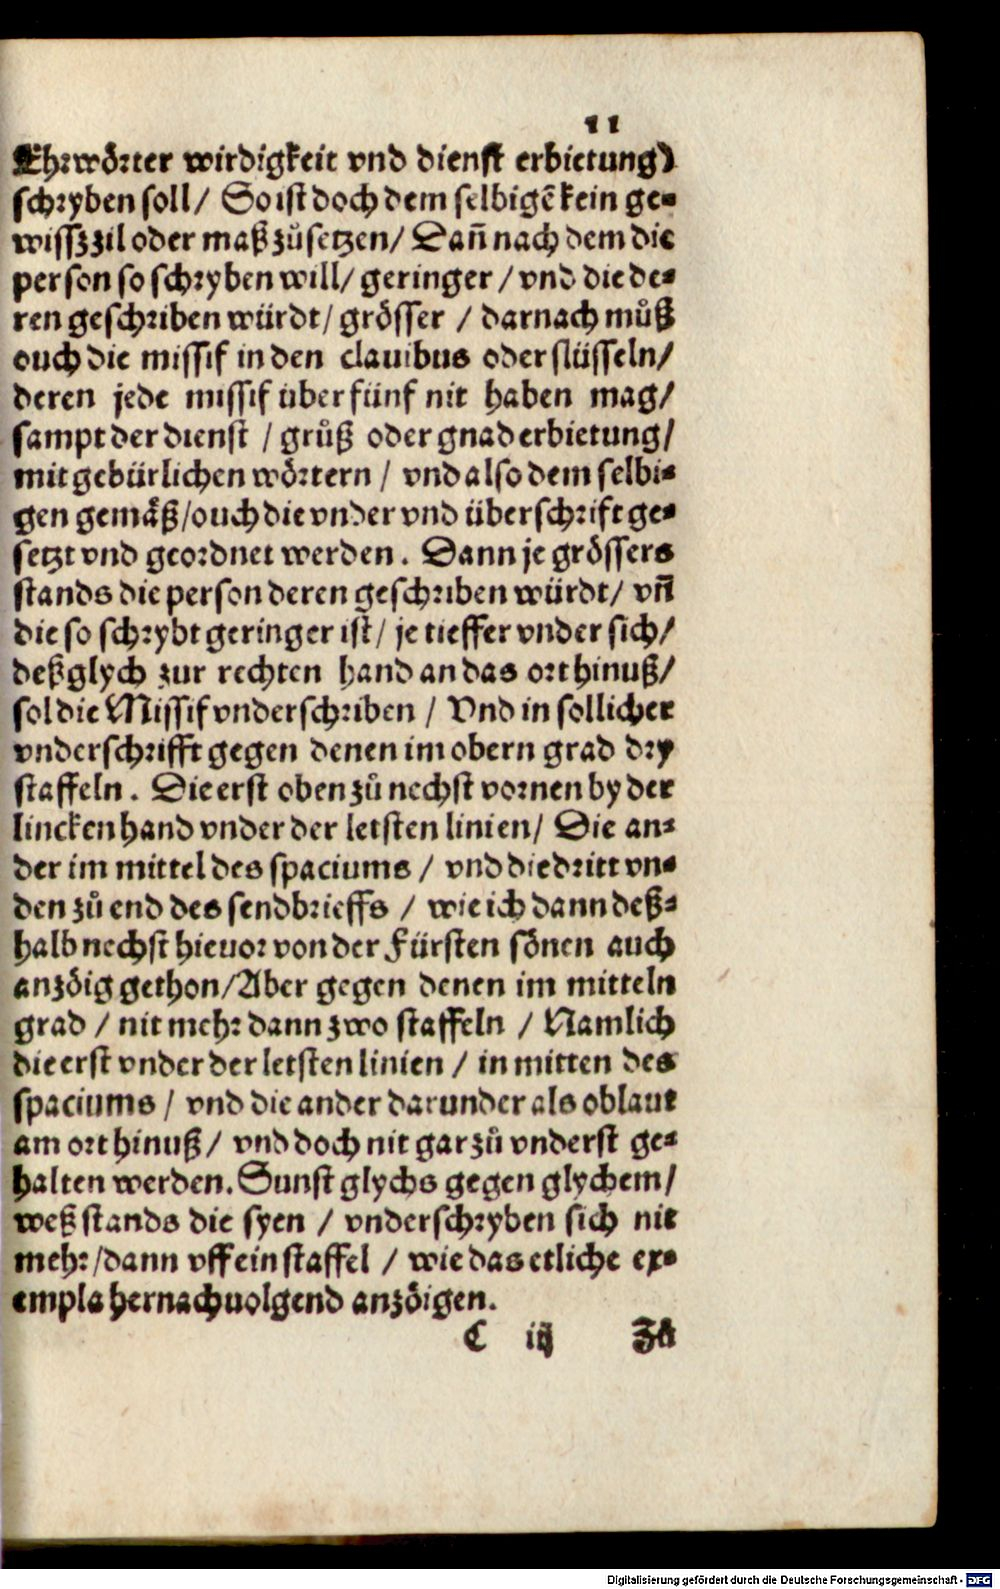 11
Ehrwörter wirdigkeit vnd dienst erbietung)
schryben soll/ So ist doch dem selbigē kein ge-
wissz zil oder maß zůsetzen/ Dan̄ nach dem die
person so schryben will/ geringer / vnd die de-
ren geschriben würdt/ grösser / darnach můß
ouch die missif in den clauibus oder slüsseln/
deren jede missif über fünf nit haben mag/
sampt der dienst / grůß oder gnad erbietung/
mit gebürlichen wörtern / vnd also dem selbi-
gen gemäß/ouch die vnder vnd überschrift ge-
setzt vnd geordnet werden. Dann je grössers
stands die person deren geschriben würdt/ vn̄
die so schrybt geringer ist/ je tieffer vnder sich/
deßglych zur rechten hand an das ort hinuß/
sol die Missif vnderschriben / Vnd in sollicher
vnderschrifft gegen denen im obern grad dry
staffeln. Die erst oben zů nechst vornen by der
lincken hand vnder der letsten linien/ Die an-
der im mittel des spaciums / vnd die dritt vn-
den zů end des sendbrieffs / wie ich dann deß-
halb nechst hieuor von der Fürsten sönen auch
anzöig gethon/Aber gegen denen im mitteln
grad / nit mehr dann zwo staffeln / Namlich
die erst vnder der letsten linien / in mitten des
spaciums / vnd die ander darunder als oblaut
am ort hinuß/ vnd doch nit gar zů vnderst ge-
halten werden. Sunst glychs gegen glychem/
weß stands die syen / vnderschryben sich nit
mehr/dann vff ein staffel / wie das etliche ex-
empla hernach uolgend anzöigen.
C iij Zů
Digitalisierung gefördert durch die Deutsche Forschungsgemeinschaft - DFG